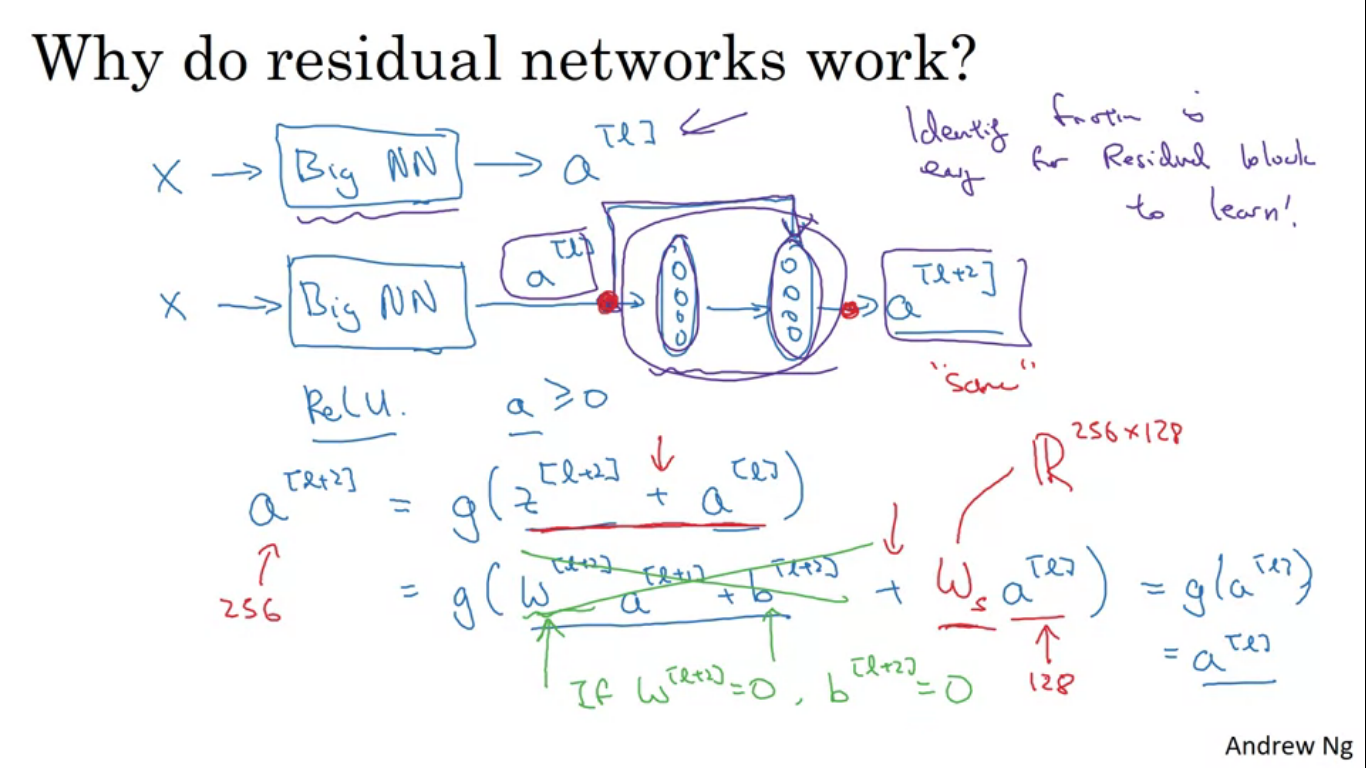 Why do residual networks work?
X → Big NN → a^[l]
Identity function is
easy for Residual block
to learn!
X → Big NN a^[l] → a^[l+2]
"Same"
ReLU. a ≥ 0
R^256×128
a^[l+2] = g(z^[l+2] + a^[l])
= g(W^[l+2] a^[l+1] + b^[l+2] + W_s a^[l]) = g(a^[l])
256
= a^[l]
If W^[l+2] = 0, b^[l+2] = 0
128
Andrew Ng